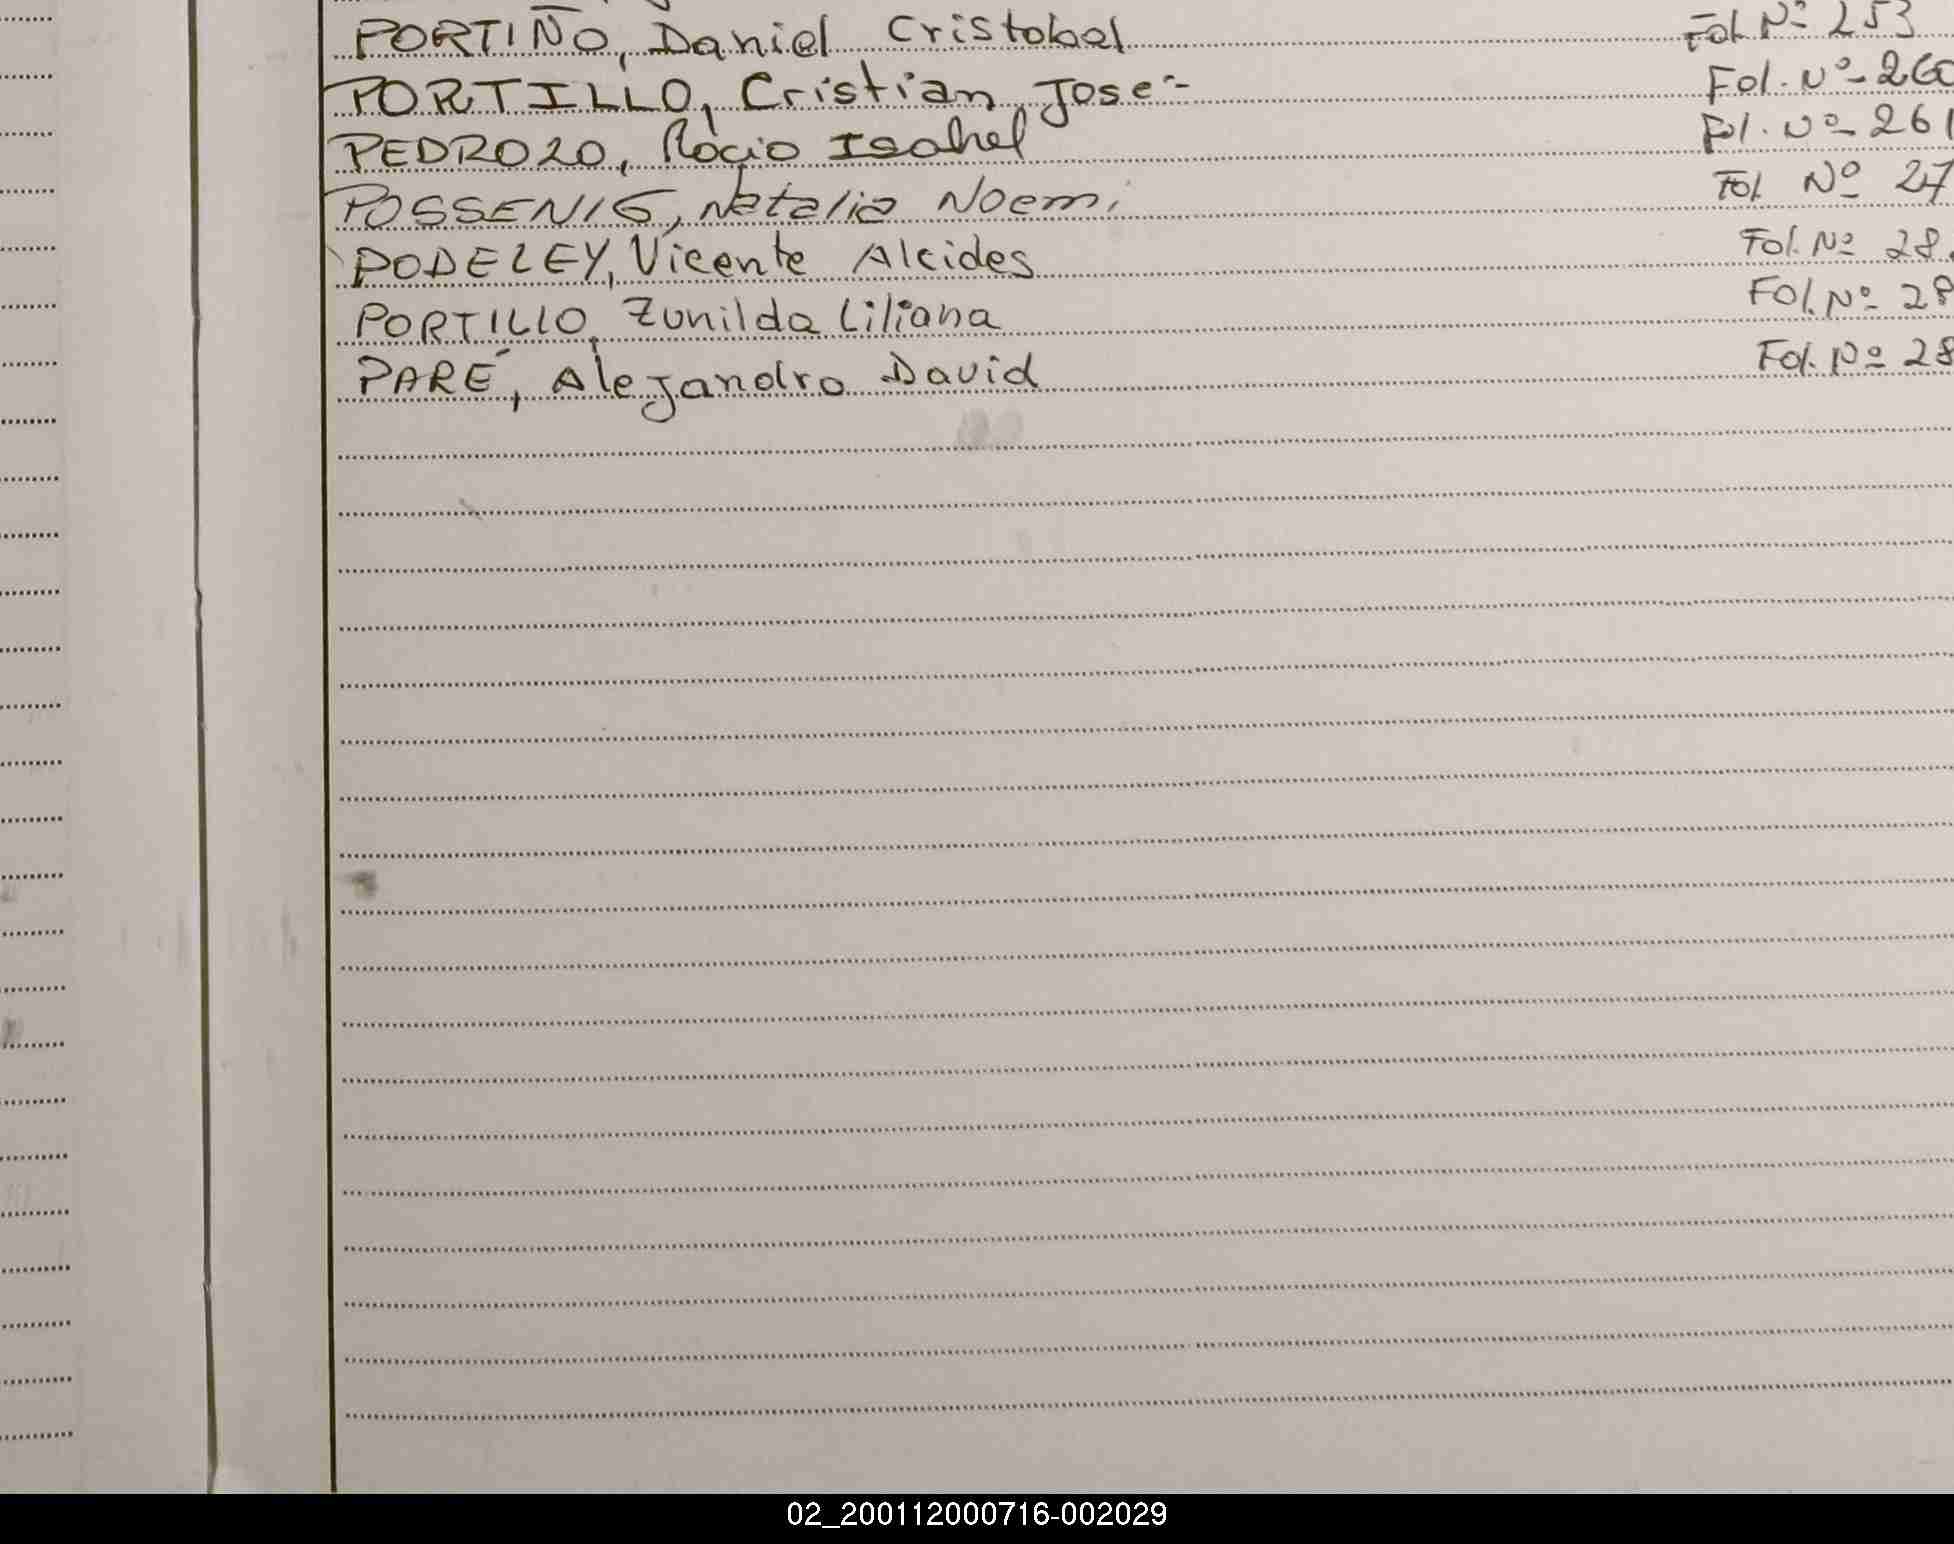 PORTIÑO, Daniel Cristobal Fol. Nº 253
PORTILLO, Cristian Jose.- Fol. Nº 260
PEDROZO, Rocio Isabel Fol. Nº 261
Natalia Noemi Fol Nº 27
PODELEY, Vicente Alcides Fol. Nº 28
PORTILLO, Zunilda Liliana Fol. Nº 28
PARÉ, Alejandro David Fol. Nº 28
02_200112000716-002029